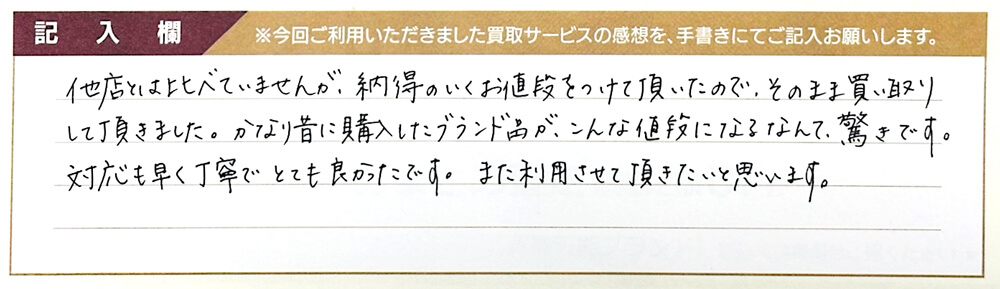 記入欄
※今回ご利用いただきました買取サービスの感想を、手書きにてご記入お願いします。
他店とは比べていませんが、納得のいくお値段をつけて頂いたので、そのまま買い取り
して頂きました。かなり昔に購入したブランド品が、こんな値段になるなんて、驚きです。
対応も早く丁寧でとても良かったです。また利用させて頂きたいと思います。